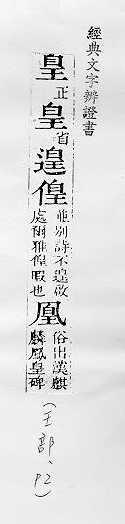 經典文字辨證書
皇正皇省遑偟並別詩不遑啟處爾雅偟暇也凰俗出漢麒麟鳳皇碑
(王部、12)